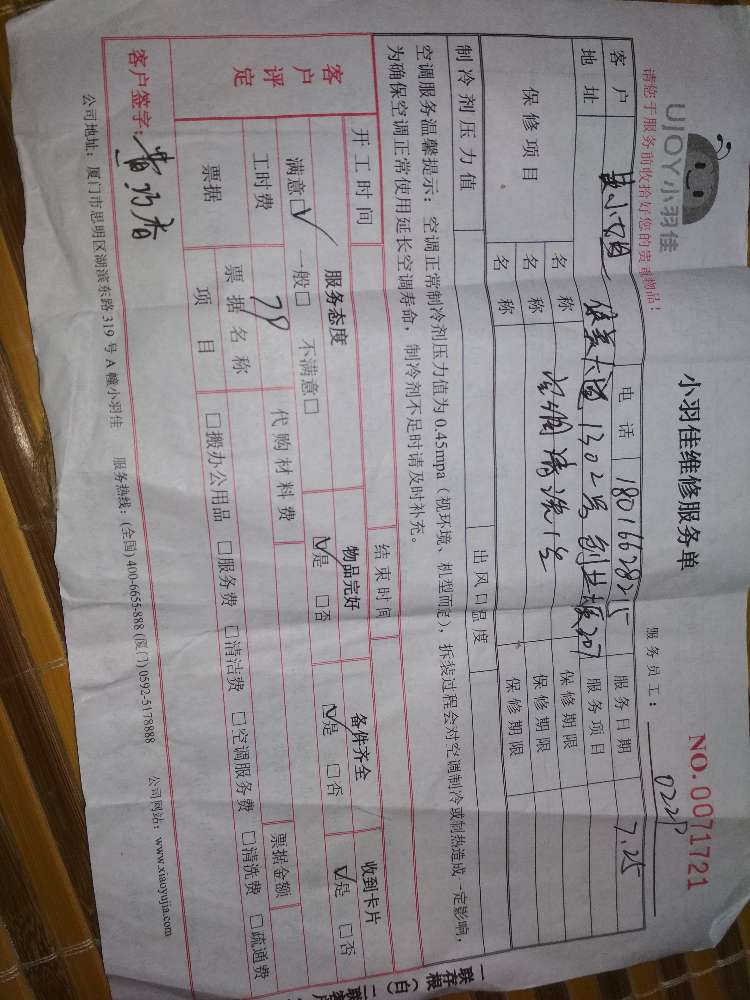 UJOY小羽佳
小羽佳维修服务单
NO.0071721
请您于服务前收拾好您的贵重物品!
服务员工:
客户 黄小姐 电话 18016628215 服务日期 7.25
地址 1302号创业楼207 服务项目
保修项目 名称 空调清洗1台 保修期限
名称 保修期限
名称 保修期限
制冷剂压力值 出风口温度
空调服务温馨提示:空调正常制冷剂压力值为0.45mpa(视环境、机型而定),拆装过程会对空调制冷或制热造成一定影响,
为确保空调正常使用延长空调寿命,制冷剂不足时请及时补充。
开工时间 结束时间
客户评定 服务态度 物品完好 备件齐全 收到卡片
满意☑ 一般□ 不满意□ ☑是 □否 ☑是 □否 ☑是 □否
工时费 78 代购材料费 票据金额
票据 票据名称项目 □搬办公用品 □服务费 □清洁费 □空调服务费 □清洗费 □疏通费
客户签字:
公司地址:厦门市思明区湖滨东路319号A幢小羽佳 服务热线:(全国)400-6655-888 (厦门)0592-5178888 公司网站:www.xiaoyujia.com
一联存根(白)